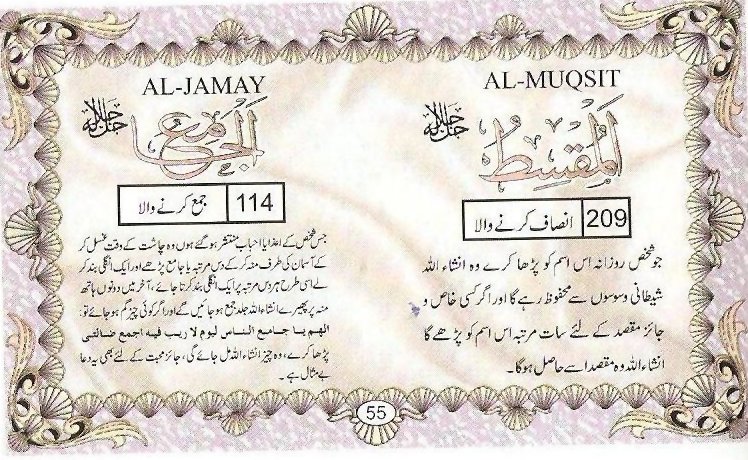 AL-MUQSIT
المُقْسِطُ جل جلالہ
209 انصاف کرنے والا
جو شخص روزانہ اس اسم کو پڑھا کرے وہ انشاء اللہ
شیطانی وسوسوں سے محفوظ رہے گا اور اگر کسی خاص و
جائز مقصد کے لئے سات مرتبہ اس اسم کو پڑھے گا
انشاء اللہ وہ مقصد اسے حاصل ہوگا۔
AL-JAMAY
الجَامِعُ جل جلالہ
114 جمع کرنے والا
جس شخص کے اعزا یا احباب منتشر ہو گئے ہوں وہ چاشت کے وقت غسل کر
کے آسمان کی طرف منہ کر کے دس مرتبہ یا جامع پڑھے اور ایک انگلی بند کر
لے اسی طرح ہر دس مرتبہ پر ایک انگلی بند کرتا جائے، آخر میں دونوں ہاتھ
منہ پر پھیرے انشاء اللہ جلد جمع ہو جائیں گے اور اگر کوئی چیز گم ہو جائے تو۔
الھم یا جامع الناس لیوم لا ریب فیہ اجمع ضالتی
پڑھا کرے، وہ چیز انشاء اللہ مل جائے گی، جائز محبت کے لئے بھی یہ دعا
بے مثال ہے۔
55